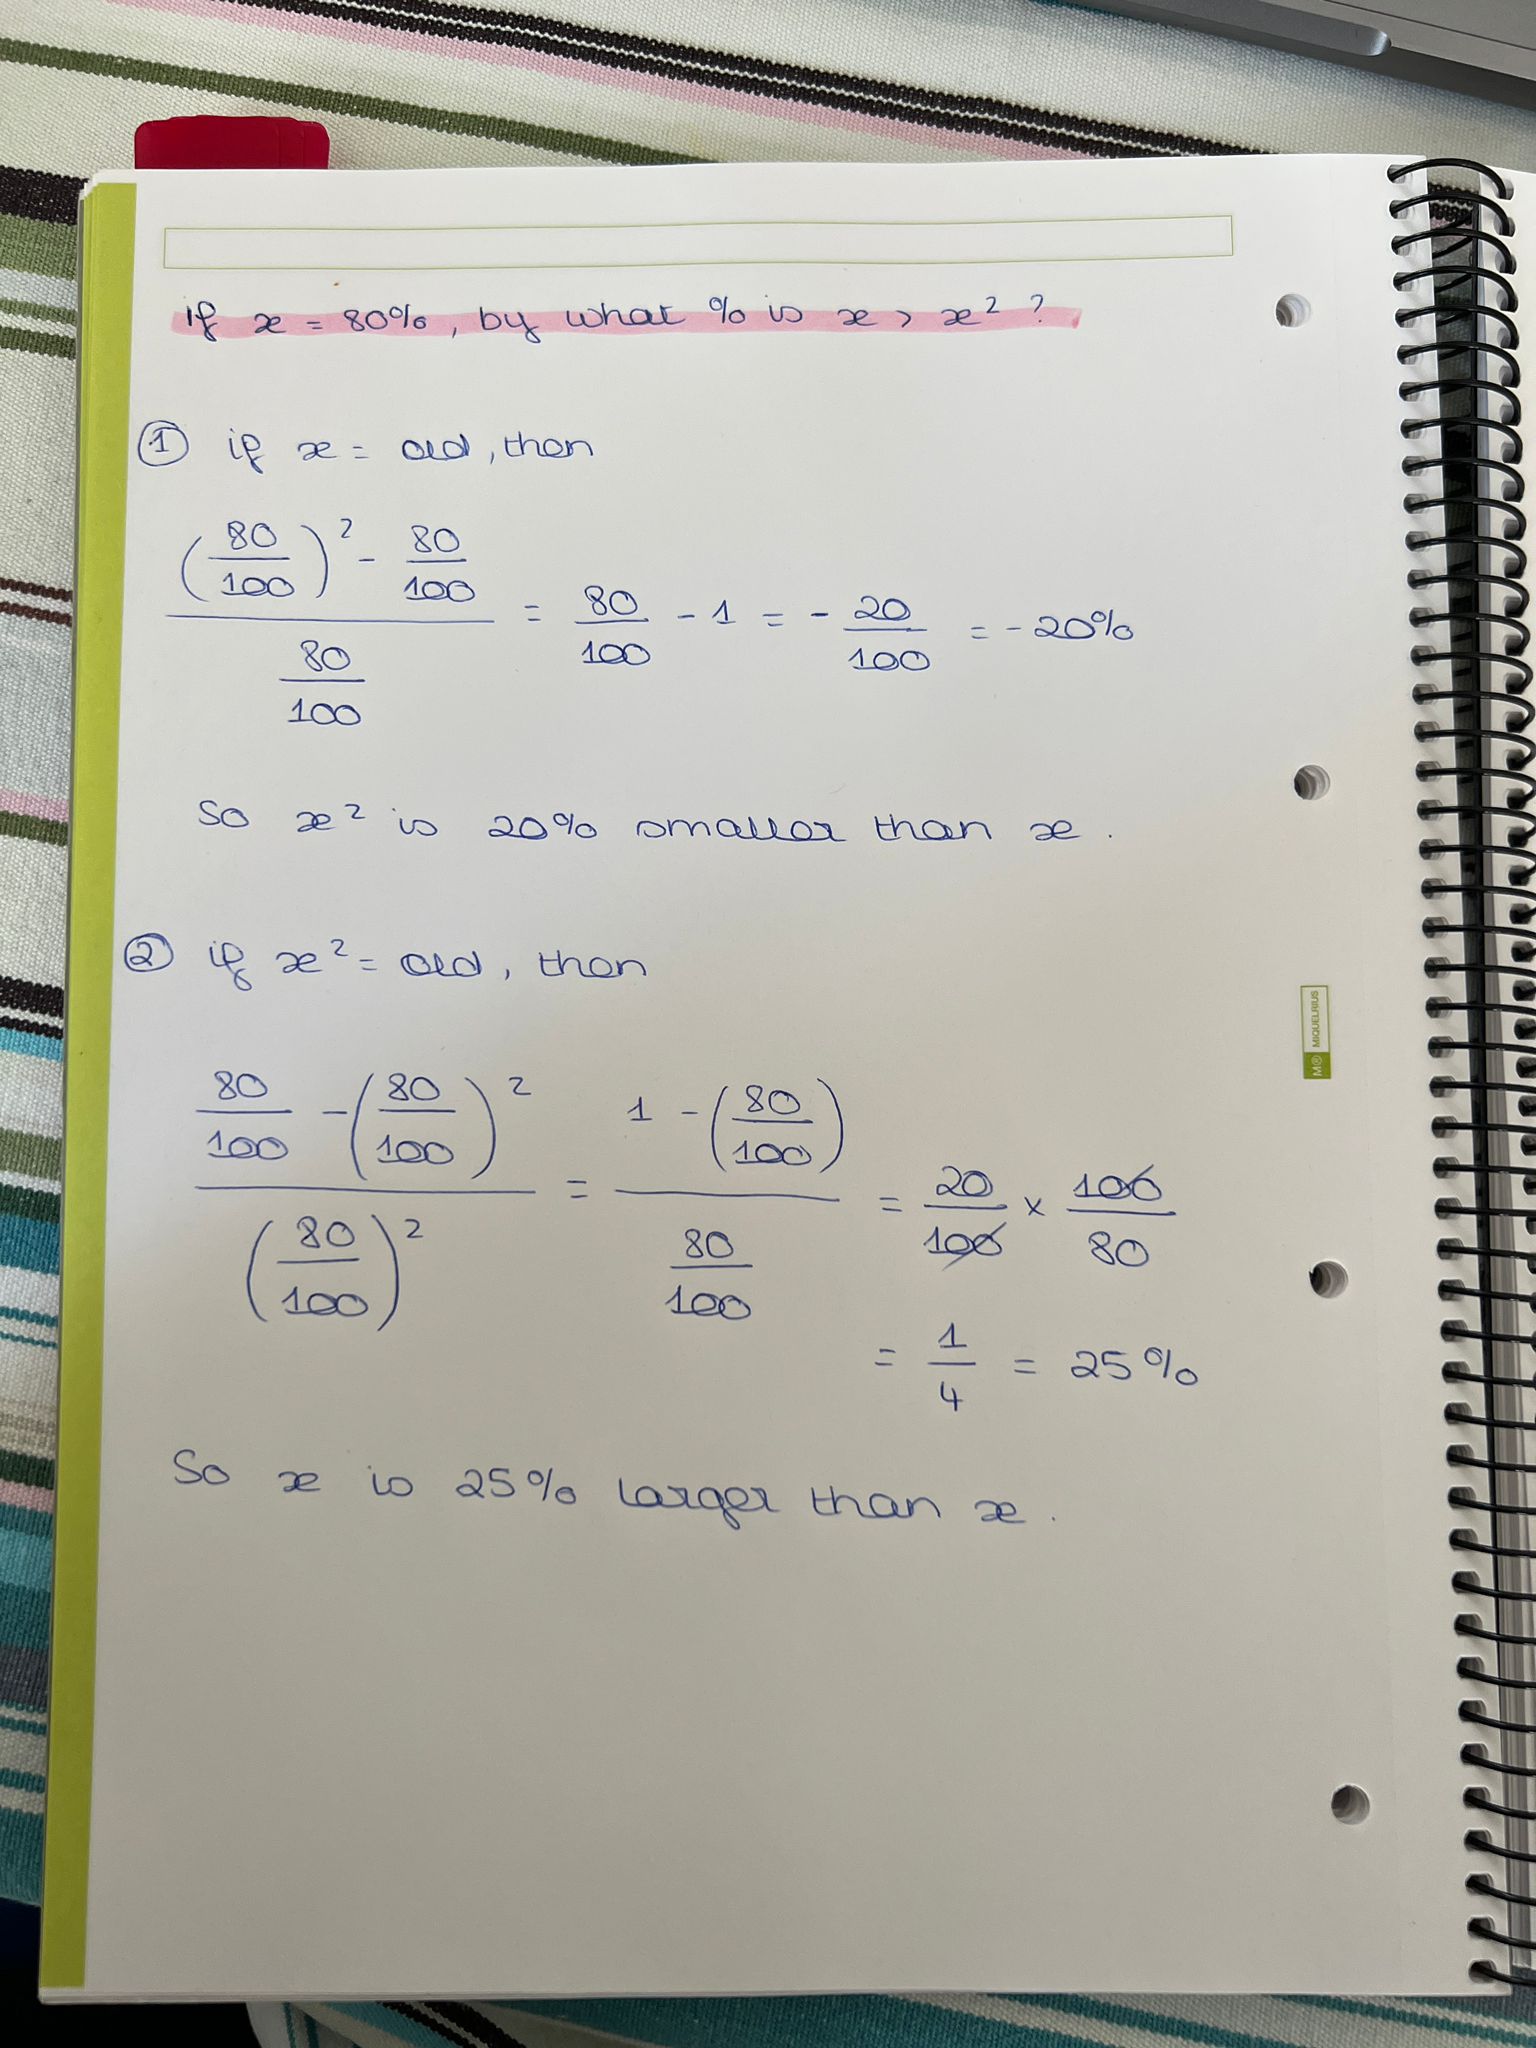 if x = 80%, by what % is x > x² ?
① if x = old, then
((80/100)² - 80/100) / (80/100) = 80/100 - 1 = - 20/100 = -20%
So x² is 20% smaller than x.
② if x² = old, then
(80/100 - (80/100)²) / (80/100)² = (1 - (80/100)) / (80/100) = 20/100 × 100/80
= 1/4 = 25%
So x is 25% larger than x.
M® MIQUELRIUS